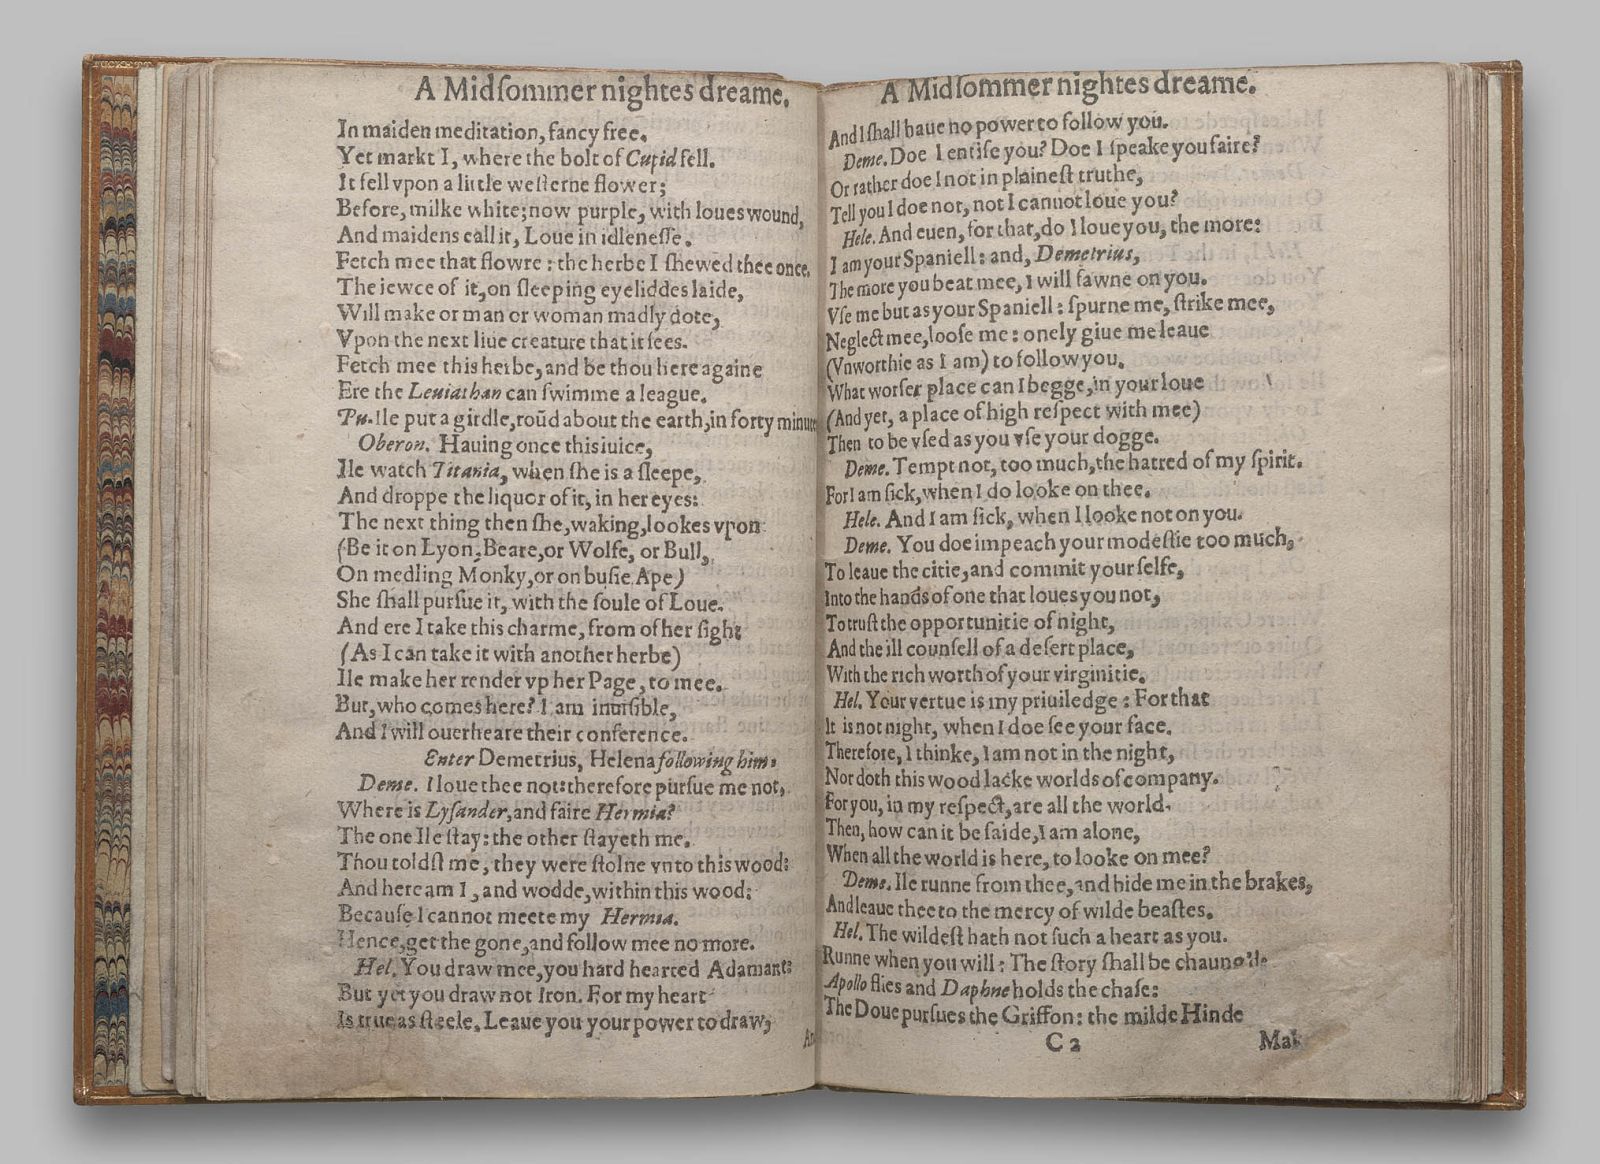 A Midſommer nightes dreame.
In maiden meditation, fancy free.
Yet markt I, where the bolt of Cupid fell.
It fell vpon a little weſterne flower;
Before, milke white; now purple, with loues wound,
And maidens call it, Loue in idleneſſe.
Fetch mee that flowre: the herbe I ſhewed thee once.
The iewce of it, on ſleeping eyeliddes laide,
Will make or man or woman madly dote,
Vpon the next liue creature that it ſees.
Fetch mee this herbe, and be thou here againe
Ere the Leuiathan can ſwimme a league.
Pu. Ile put a girdle, roūd about the earth, in forty minute
Oberon. Hauing once this iuice,
Ile watch Titania, when ſhe is a ſleepe,
And droppe the liquor of it, in her eyes:
The next thing then ſhe, waking, lookes vpon
(Be it on Lyon, Beare, or Wolfe, or Bull,
On medling Monky, or on buſie Ape)
She ſhall purſue it, with the ſoule of Loue.
And ere I take this charme, from of her ſight
(As I can take it with another herbe)
Ile make her render vp her Page, to mee.
But, who comes here? I am inuiſible,
And I will ouerheare their conference.
Enter Demetrius, Helena following him.
Deme. I loue thee not: therefore purſue me not,
Where is Lyſander, and faire Hermia?
The one Ile ſtay: the other ſtayeth me.
Thou toldſt me, they were ſtolne vnto this wood:
And here am I, and wodde, within this wood:
Becauſe I cannot meete my Hermia.
Hence, get the gone, and follow mee no more.
Hel. You draw mee, you hard hearted Adamant:
But yet you draw not Iron. For my heart
Is true as ſteele. Leaue you your power to draw,
A Midſommer nightes dreame.
And I ſhall haue no power to follow you.
Deme. Doe I entiſe you? Doe I ſpeake you faire?
Or rather doe I not in plaineſt truthe,
Tell you I doe not, not I cannot loue you?
Hele. And euen, for that, do I loue you, the more:
I am your Spaniell: and, Demetrius,
The more you beat mee, I will fawne on you.
Vſe me but as your Spaniell: ſpurne me, ſtrike mee,
Neglect mee, looſe me: onely giue me leaue
(Vnworthie as I am) to follow you.
What worſer place can I begge, in your loue
(And yet, a place of high reſpect with mee)
Then to be vſed as you vſe your dogge.
Deme. Tempt not, too much, the hatred of my ſpirit.
For I am ſick, when I do looke on thee.
Hele. And I am ſick, when I looke not on you.
Deme. You doe impeach your modeſtie too much,
To leaue the citie, and commit your ſelfe,
Into the hands of one that loues you not,
To truſt the opportunitie of night,
And the ill counſell of a deſert place,
With the rich worth of your virginitie.
Hel. Your vertue is my priuiledge: For that
It is not night, when I doe ſee your face.
Therefore, I thinke, I am not in the night,
Nor doth this wood lacke worlds of company.
For you, in my reſpect, are all the world.
Then, how can it be ſaide, I am alone,
When all the world is here, to looke on mee?
Deme. Ile runne from thee, and hide me in the brakes,
And leaue thee to the mercy of wilde beaſtes.
Hel. The wildeſt hath not ſuch a heart as you.
Runne when you will: The ſtory ſhall be
Apollo flies and Daphne holds the chaſe:
The Doue purſues the Griffon: the milde Hinde
C 2